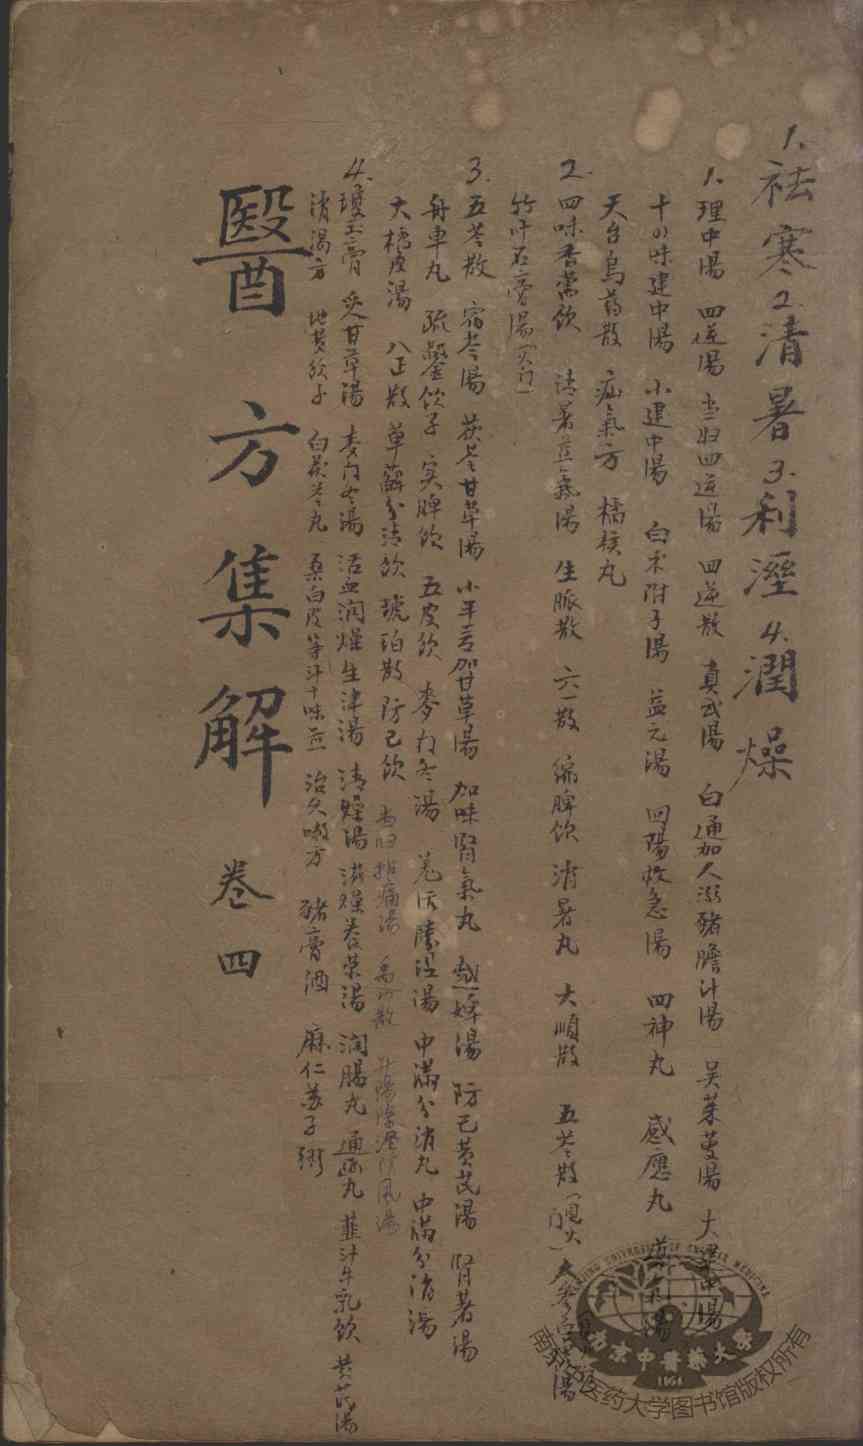 1.祛寒2.清暑3.利溼4.潤燥
1.理中湯 四逆湯 当归四逆湯 四逆散 真武湯 白通加人溺豬膽汁湯 吴茱萸湯 大建中湯
十四味建中湯 小建中湯 白朮附子湯 益元湯 回陽救急湯 四神丸 感應丸 導氣湯
天台烏药散 疝氣方 橘核丸
2.四味香薷飲 清暑益氣湯 生脈散 六一散 縮脾飲 消暑丸 大順散 五苓散 人参白虎湯
竹叶石膏湯(火门)
3.五苓散 猪苓湯 茯苓甘草湯 小半夏加甘草湯 加味腎氣丸 越婢湯 防己黄芪湯 腎著湯
舟車丸 疏鑿飲子 实脾飲 五皮飲 麥门冬湯 羌活勝湿湯 中滿分消丸 中滿分消湯
大橘皮湯 八正散 萆薢分清飲 琥珀散 防己飲 当归拈痛湯 禹功散 升陽除溼防風湯
4.瓊玉膏 炙甘草湯 麦门冬湯 活血润燥生津湯 清燥湯 滋燥养荣湯 润腸丸 通幽丸 韮汁牛乳飲 黄芪湯
消渴方 地黄飲子 白茯苓丸 桑白皮等汁十味煎 治久嗽方 豬膏酒 麻仁苏子粥
醫方集解 卷四
南京中醫藥大學
1954
南京中医药大学图书馆版权所有